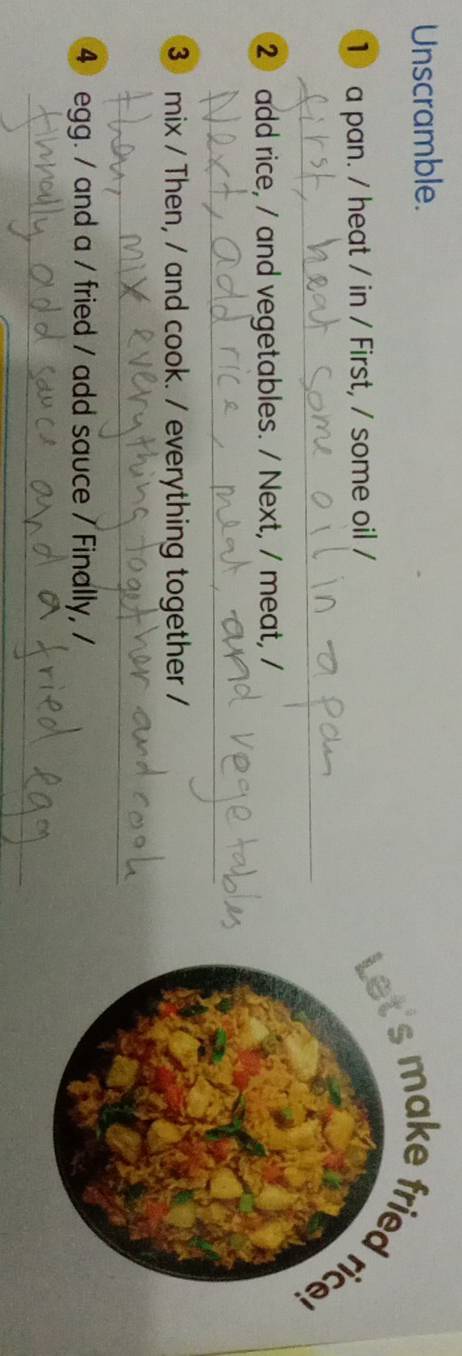 Unscramble.
1 a pan. / heat / in / First, / some oil /
first, heat some oil in a pan
2 add rice, / and vegetables. / Next, / meat, /
Next, add rice, meat, and vegetables
3 mix / Then, / and cook. / everything together /
then, mix everything together and cook
4 egg. / and a / fried / add sauce / Finally, /
finnally, add sauce and a fried egg
Let's make fried rice!